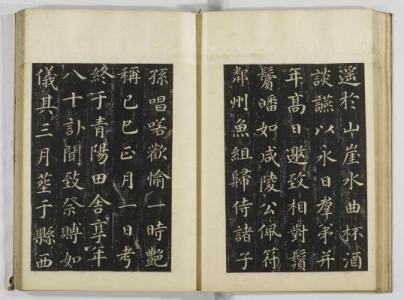 遥於山崖水曲杯酒
談讌以永日羣弟并
年高日邀致相對鬚
鬢皤如咸陵公佩符
鄰州魚組歸侍諸子
孫唱喏歡愉一時艷
稱已巳正月一日考
終于青陽田舍享年
八十訃聞致祭賻如
儀其三月葬于縣西